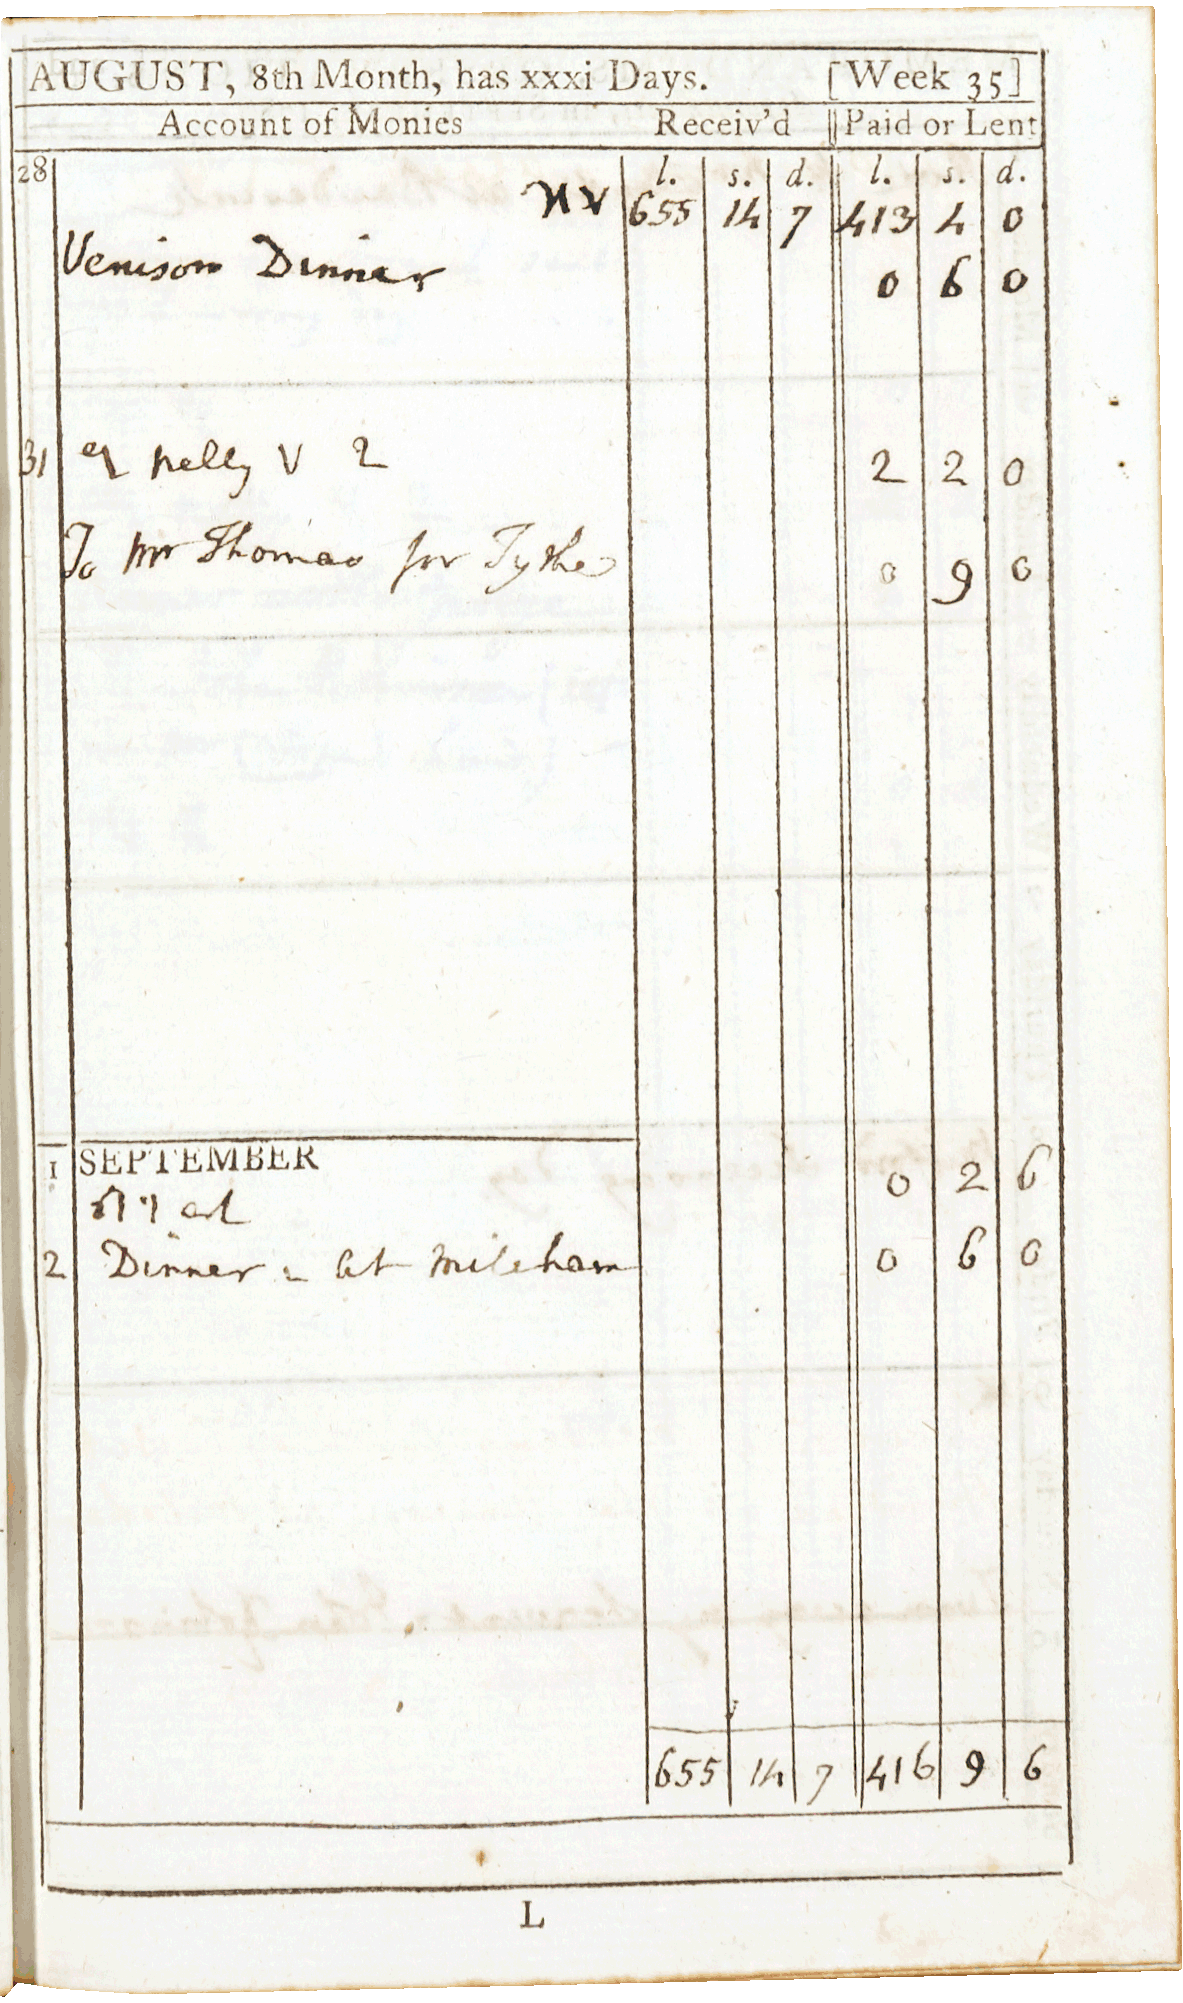 AUGUST, 8th Month, has xxxi Days. [Week 35]
Account of Monies Receiv'd Paid or Lent
28 l. s. d. l. s. d.
655 14 7 413 4 0
Venison Dinner 0 6 0
31 nelly V 2 2 2 0
To Mr Thomas for Tythe 0 9 0
1 SEPTEMBER 0 2 6
2 Dinner at Mileham 0 6 0
655 14 7 416 9 6
L